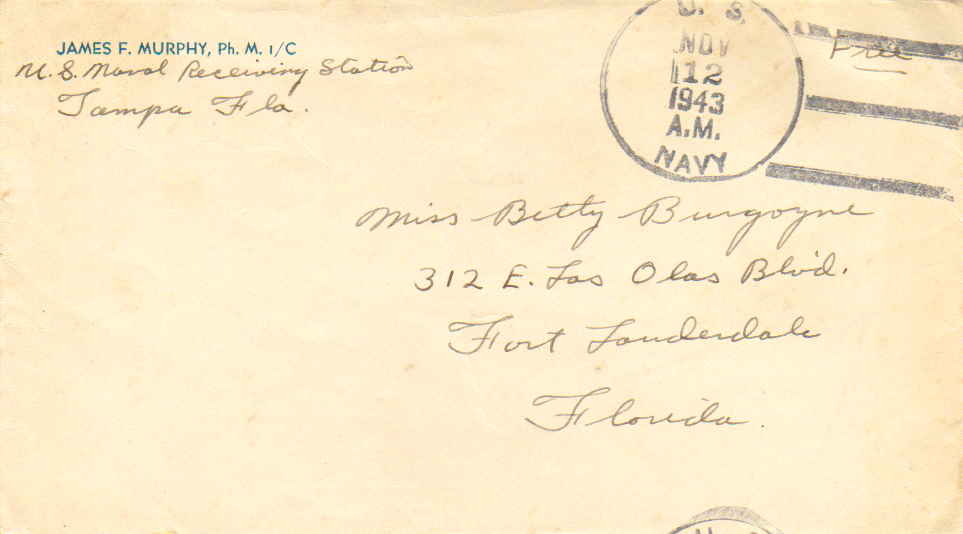 JAMES F. MURPHY, Ph. M. 1/C
U. S. Naval Receiving Station
Tampa Fla.
U. S.
NOV
12
1943
A.M.
NAVY
Free
Miss Betty Burgoyne
312 E. Las Olas Blvd.
Fort Lauderdale
Florida.